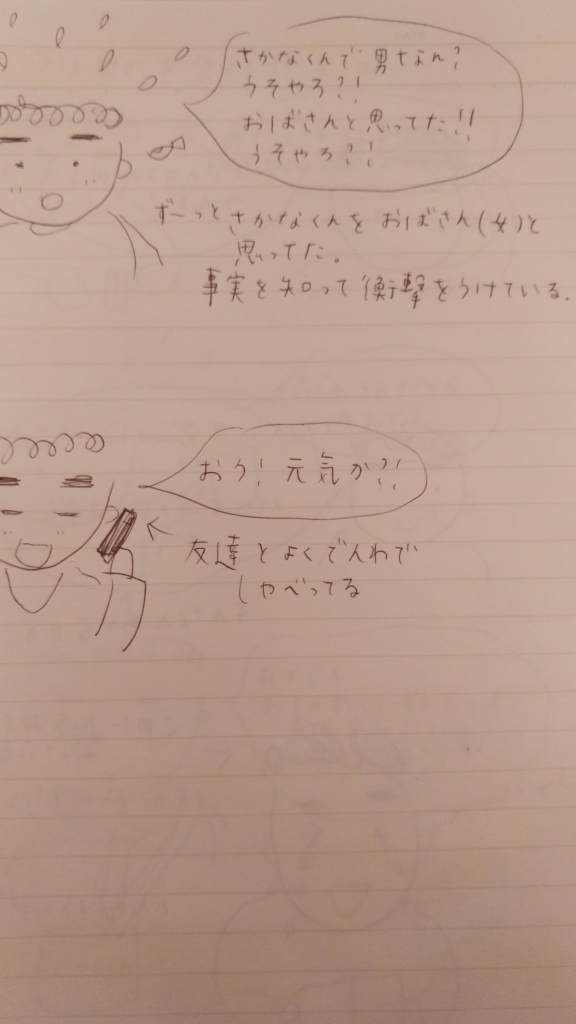 さかなくんて男なん?
うそやろ?!
おばさんと思ってた!!
うそやろ?!
ずーっとさかなくんをおばさん(女)と
思ってた。
事実を知って衝撃をうけている。
おう!元気か?!
友達とよくでんわで
しゃべってる